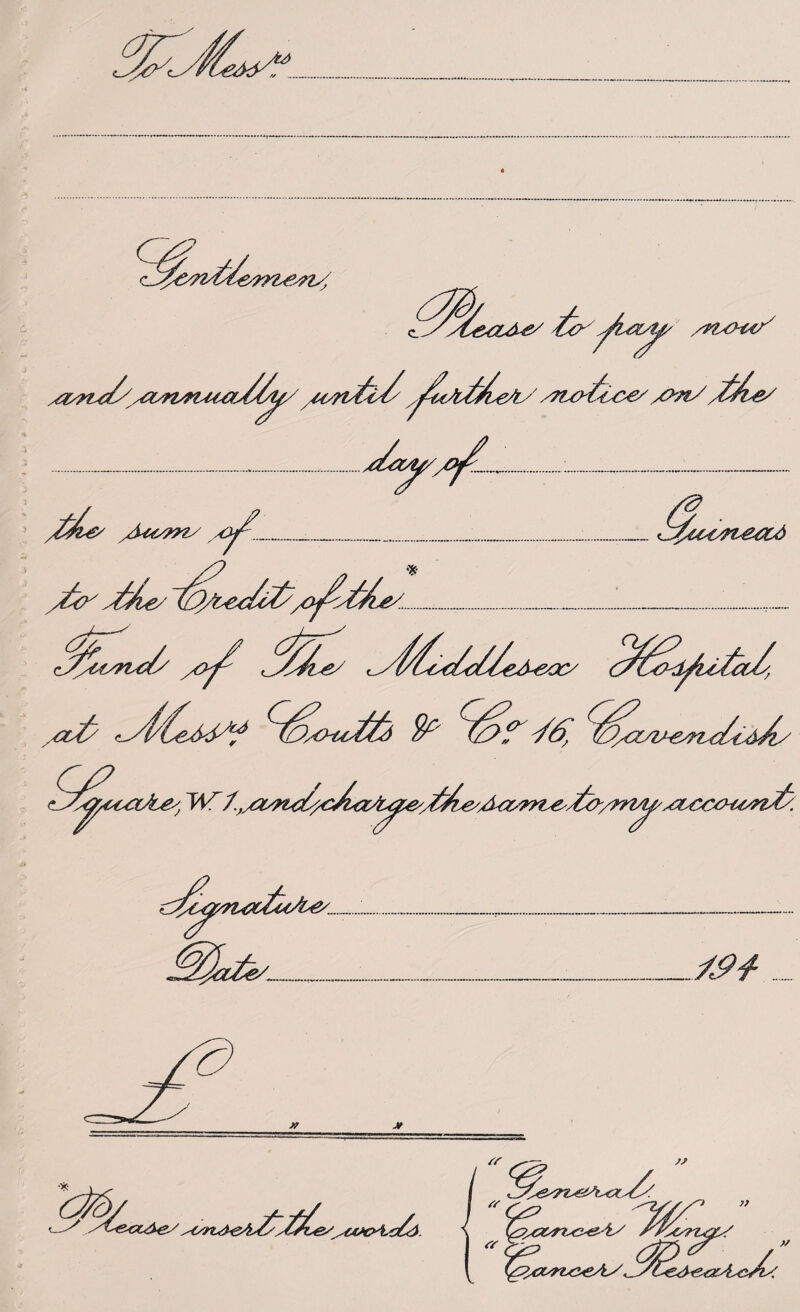 To Messrs
Gentlemen,
Please to pay now
and annually until further notice on the
day of
the sum of Guineas
to the Credit of the*
Fund of The Middlesex Hospital,
at Messrs Coutts & Co 16, Cavendish
Square, W.1., and charge the same to my account.
Signature
Date 194
£ " "
* Please insert the words.
" General "
" Cancer Wing. "
" Cancer Research. "